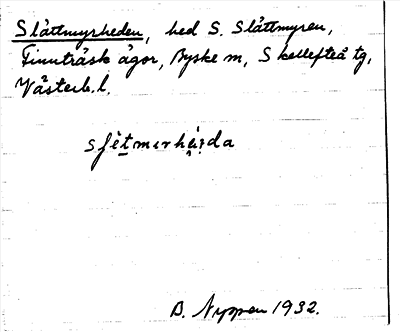 Slåttmyrheden, hed S. Slåttmyren,
Finnträsk ägor, Byske m, Skellefteå tg,
Västerb. l.
B. Nyman 1932.